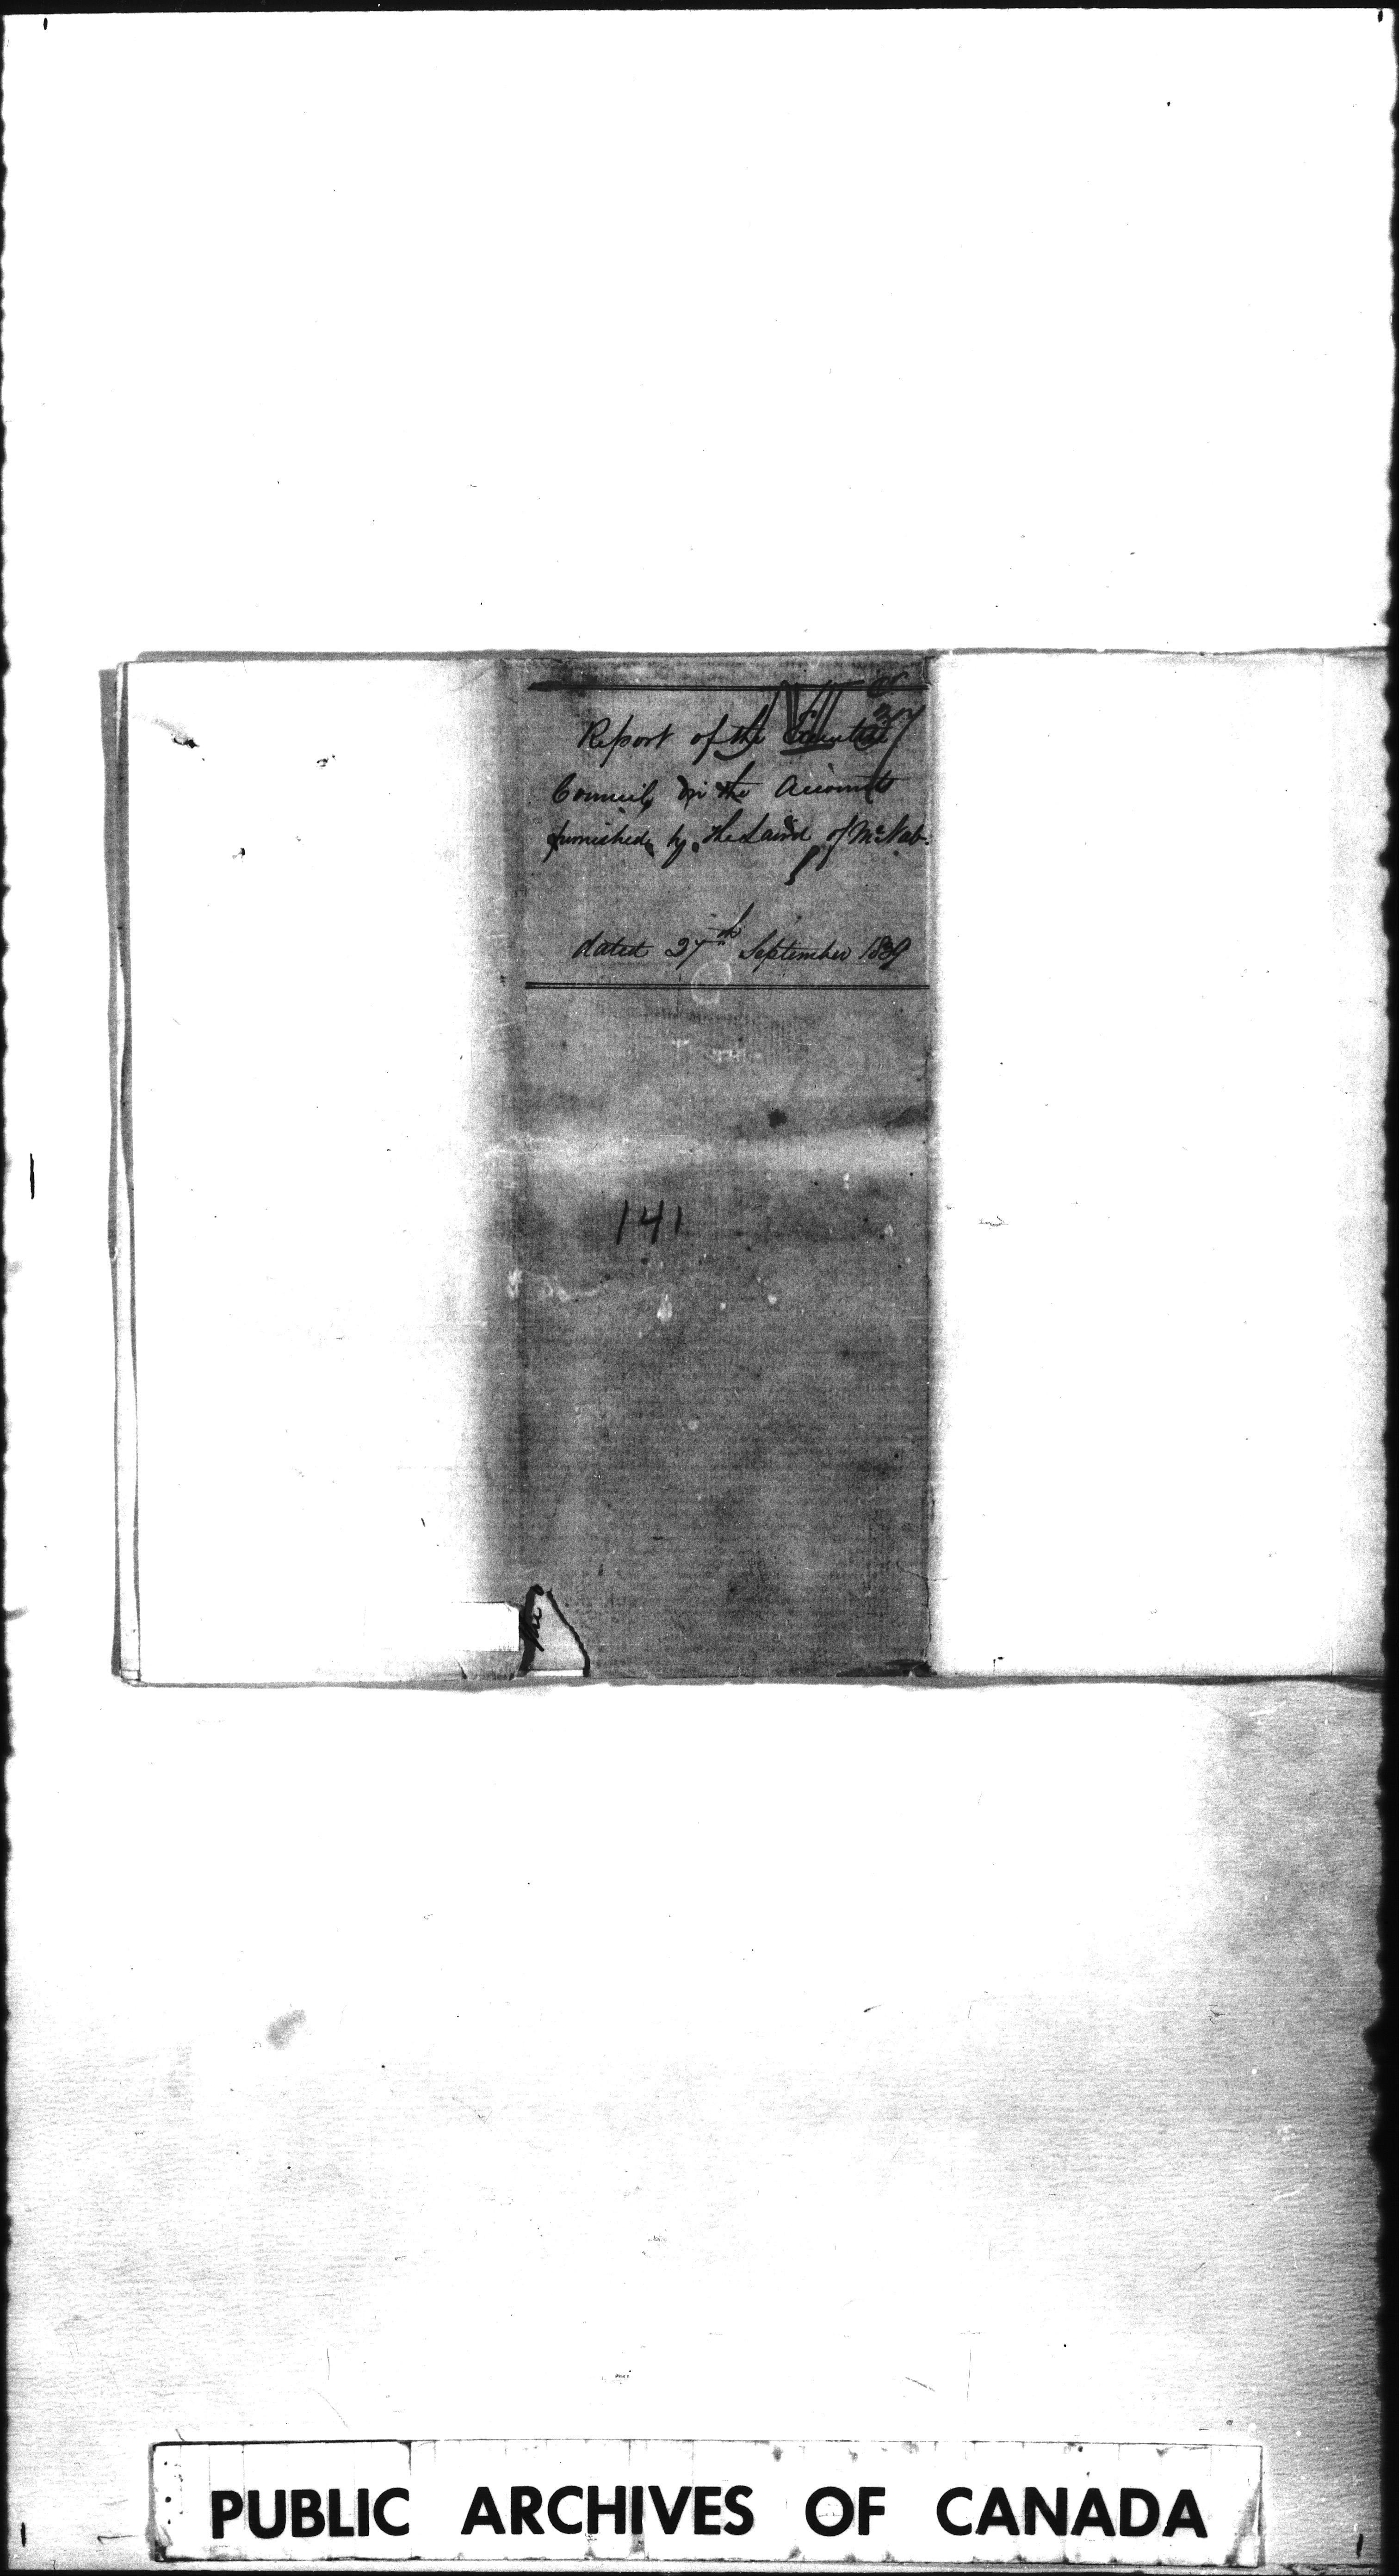 Report of the Executive
Council on the Accounts
furnished by the Laird of McNab.
dated 27th September 1839
141
PUBLIC ARCHIVES OF CANADA